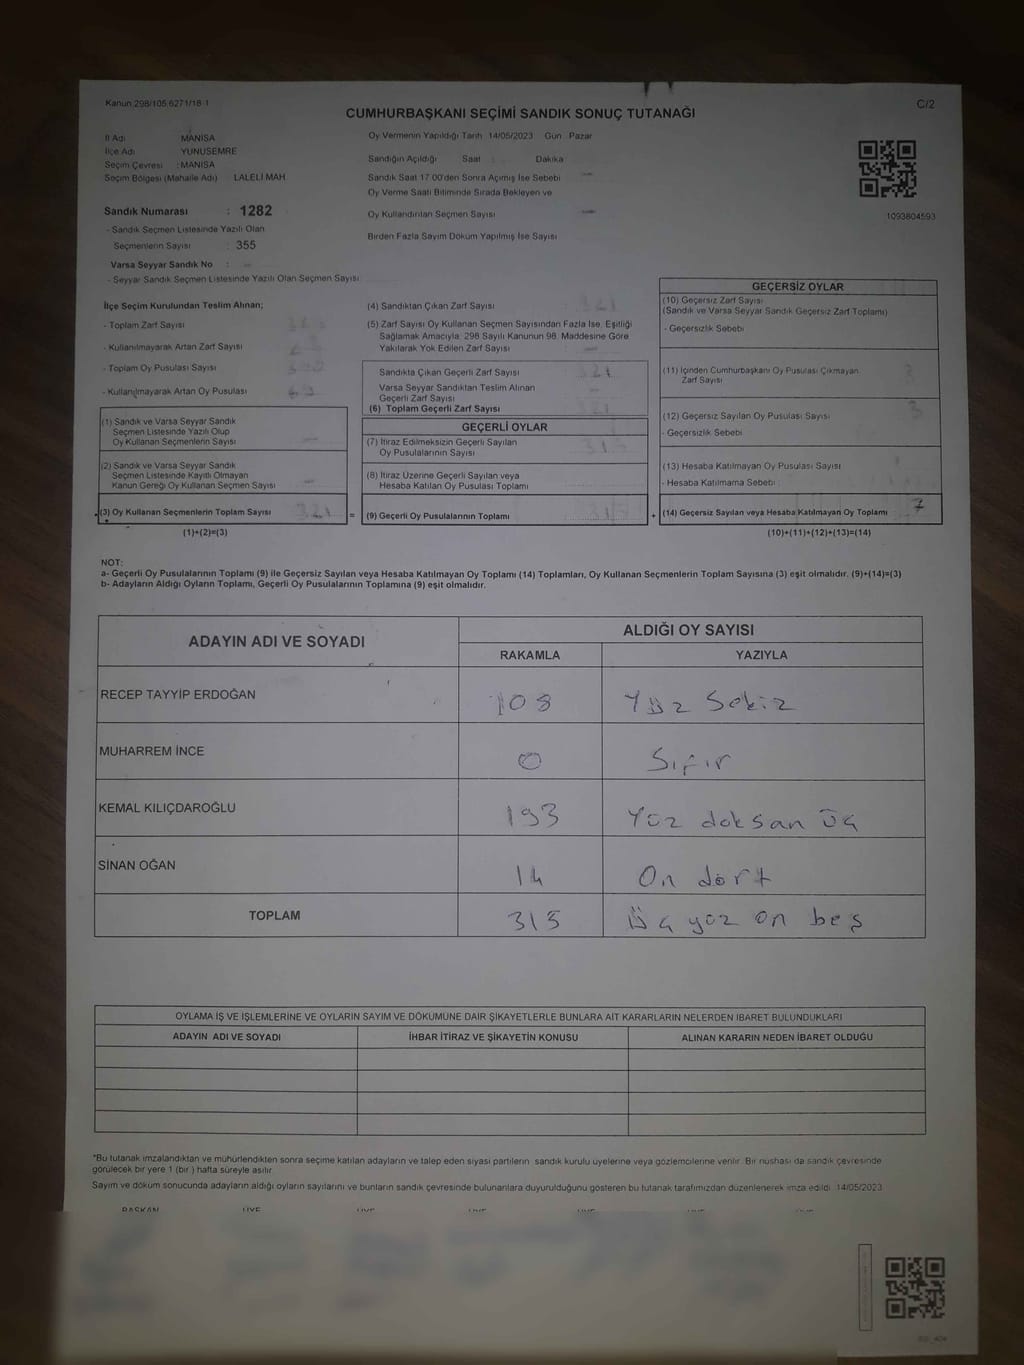 Kanun 298/105,6271/18-1
C/2
CUMHURBAŞKANI SEÇİMİ SANDIK SONUÇ TUTANAĞI
İl Adı : MANİSA
İlçe Adı : YUNUSEMRE
Seçim Çevresi : MANİSA
Seçim Bölgesi (Mahalle Adı) : LALELİ MAH
Sandık Numarası : 1282
- Sandık Seçmen Listesinde Yazılı Olan
Seçmenlerin Sayısı : 355
Varsa Seyyar Sandık No :
- Seyyar Sandık Seçmen Listesinde Yazılı Olan Seçmen Sayısı:
Oy Vermenin Yapıldığı Tarih 14/05/2023 Gün Pazar
Sandığın Açıldığı Saat : Dakika
Sandık Saat 17.00'den Sonra Açımış İse Sebebi —
Oy Verme Saati Bitiminde Sırada Bekleyen ve
Oy Kullandırılan Seçmen Sayısı —
Birden Fazla Sayım Döküm Yapılmış İse Sayısı
1093804593
İlçe Seçim Kurulundan Teslim Alınan;
- Toplam Zarf Sayısı
- Kullanılmayarak Artan Zarf Sayısı
- Toplam Oy Pusulası Sayısı
- Kullanılmayarak Artan Oy Pusulası
(1) Sandık ve Varsa Seyyar Sandık
Seçmen Listesinde Yazılı Olup
Oy Kullanan Seçmenlerin Sayısı
(2) Sandık ve Varsa Seyyar Sandık
Seçmen Listesinde Kayıtlı Olmayan
Kanun Gereği Oy Kullanan Seçmen Sayısı
(3) Oy Kullanan Seçmenlerin Toplam Sayısı 321
(1)+(2)=(3)
(4) Sandıktan Çıkan Zarf Sayısı : 321
(5) Zarf Sayısı Oy Kullanan Seçmen Sayısından Fazla İse, Eşitliği
Sağlamak Amacıyla, 298 Sayılı Kanunun 98. Maddesine Göre
Yakılarak Yok Edilen Zarf Sayısı : —
Sandıkta Çıkan Geçerli Zarf Sayısı 321
Varsa Seyyar Sandıktan Teslim Alınan
Geçerli Zarf Sayısı
(6) Toplam Geçerli Zarf Sayısı 321
GEÇERLİ OYLAR
(7) İtiraz Edilmeksizin Geçerli Sayılan
Oy Pusulalarının Sayısı 315
(8) İtiraz Üzerine Geçerli Sayılan veya
Hesaba Katılan Oy Pusulası Toplamı
=
(9) Geçerli Oy Pusulalarının Toplamı 315
GEÇERSİZ OYLAR
(10) Geçersiz Zarf Sayısı
(Sandık ve Varsa Seyyar Sandık Geçersiz Zarf Toplamı)
- Geçersizlik Sebebi
(11) İçinden Cumhurbaşkanı Oy Pusulası Çıkmayan
Zarf Sayısı 3
(12) Geçersiz Sayılan Oy Pusulası Sayısı 3
- Geçersizlik Sebebi
(13) Hesaba Katılmayan Oy Pusulası Sayısı
- Hesaba Katılmama Sebebi :
+
(14) Geçersiz Sayılan veya Hesaba Katılmayan Oy Toplamı 7
(10)+(11)+(12)+(13)=(14)
NOT:
a- Geçerli Oy Pusulalarının Toplamı (9) ile Geçersiz Sayılan veya Hesaba Katılmayan Oy Toplamı (14) Toplamları, Oy Kullanan Seçmenlerin Toplam Sayısına (3) eşit olmalıdır. (9)+(14)=(3)
b- Adayların Aldığı Oyların Toplamı, Geçerli Oy Pusulalarının Toplamına (9) eşit olmalıdır.
ADAYIN ADI VE SOYADI
ALDIĞI OY SAYISI
RAKAMLA YAZIYLA
RECEP TAYYİP ERDOĞAN 108 Yüz Sekiz
MUHARREM İNCE 0 Sıfır
KEMAL KILIÇDAROĞLU 193 Yüz doksan üç
SİNAN OĞAN 14 On dört
TOPLAM 315 Üç yüz on beş
OYLAMA İŞ VE İŞLEMLERİNE VE OYLARIN SAYIM VE DÖKÜMÜNE DAİR ŞİKAYETLERLE BUNLARA AİT KARARLARIN NELERDEN İBARET BULUNDUKLARI
ADAYIN ADI VE SOYADI İHBAR İTİRAZ VE ŞİKAYETİN KONUSU ALINAN KARARIN NEDEN İBARET OLDUĞU
*Bu tutanak imzalandıktan ve mühürlendikten sonra seçime katılan adayların ve talep eden siyasi partilerin sandık kurulu üyelerine veya gözlemcilerine verilir. Bir nüshası da sandık çevresinde
görülecek bir yere 1 (bir ) hafta süreyle asılır.
Sayım ve döküm sonucunda adayların aldığı oyların sayılarını ve bunların sandık çevresinde bulunanlara duyurulduğunu gösteren bu tutanak tarafımızdan düzenlenerek imza edildi. 14/05/2023
BAŞKAN ÜYE ÜYE ÜYE ÜYE ÜYE ÜYE